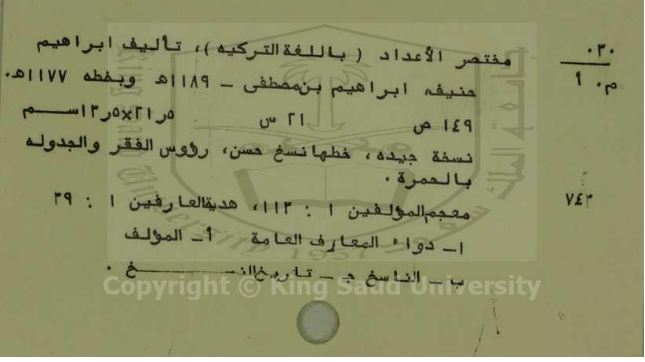 ٠٣٠ مختصر الأعداد ( باللغة التركيه )، تأليف ابراهيم
م٠ أ حنيف، ابراهيم بن مصطفى - ١١٨٩هـ وبخطه ١١٧٧هـ.
١٤٩ ص ٢١ س ٥ر٢١×٥ر١٣ســـم
نسخة جيده، خطها نسخ حسن، رؤوس الفقر والجدوله
بالحمرة .
٧٤٣ معجم المؤلفين ١ : ١١٣، هدية العارفين ١ : ٣٩
١- دواء المعارف العامة أ- المؤلف
ب - الناسخ ج - تاريخ النـــــخ .
Copyright © King Saud University